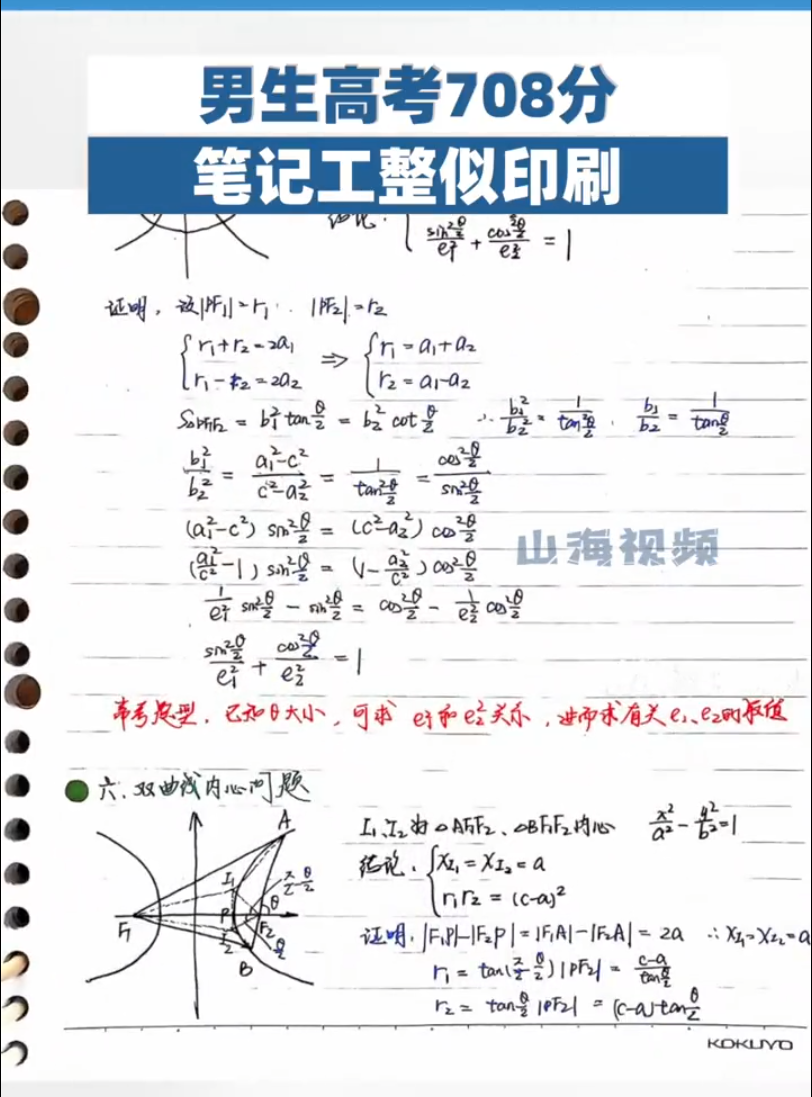 男生高考708分
笔记工整似印刷
结论. { sin²θ/2 / e₁² + cos²θ/2 / e₂² = 1
证明, 设|PF₁|=r₁. |PF₂|=r₂
{ r₁+r₂=2a₁ ⇒ { r₁=a₁+a₂
r₁-r₂=2a₂ r₂=a₁-a₂
S△PF₁F₂ = b₁² tan θ/2 = b₂² cot θ/2 ∴ b₁²/b₂² = 1/tan²θ/2 . b₁/b₂ = 1/tanθ/2
b₁²/b₂² = a₁²-c²/c²-a₂² = 1/tan²θ/2 = cos²θ/2 / sin²θ/2
(a₁²-c²) sin²θ/2 = (c²-a₂²) cos²θ/2
(a₁²/c²-1) sin²θ/2 = (1-a₂²/c²) cos²θ/2
1/e₁² sin²θ/2 - sin²θ/2 = cos²θ/2 - 1/e₂² cos²θ/2
sin²θ/2 / e₁² + cos²θ/2 / e₂² = 1
山海视频
常考题型, 已知θ大小, 可求 e₁²和e₂²关系, 进而求有关e₁、e₂的最值
六. 双曲线内心问题
A
I₁
π/2-θ/2
θ
F₁
P
F₂
I₂
θ/2
B
I₁、I₂为△AF₁F₂、△BF₁F₂内心 x²/a² - y²/b² = 1
结论. { x_I₁ = x_I₂ = a
r₁r₂ = (c-a)²
证明. |F₁P|-|F₂P|=|F₁A|-|F₂A|=2a ∴ x_I₁=x_I₂=a
r₁ = tan(π/2-θ/2)|PF₂| = c-a/tanθ/2
r₂ = tanθ/2 |PF₂| = (c-a)tanθ/2
KOKUYO